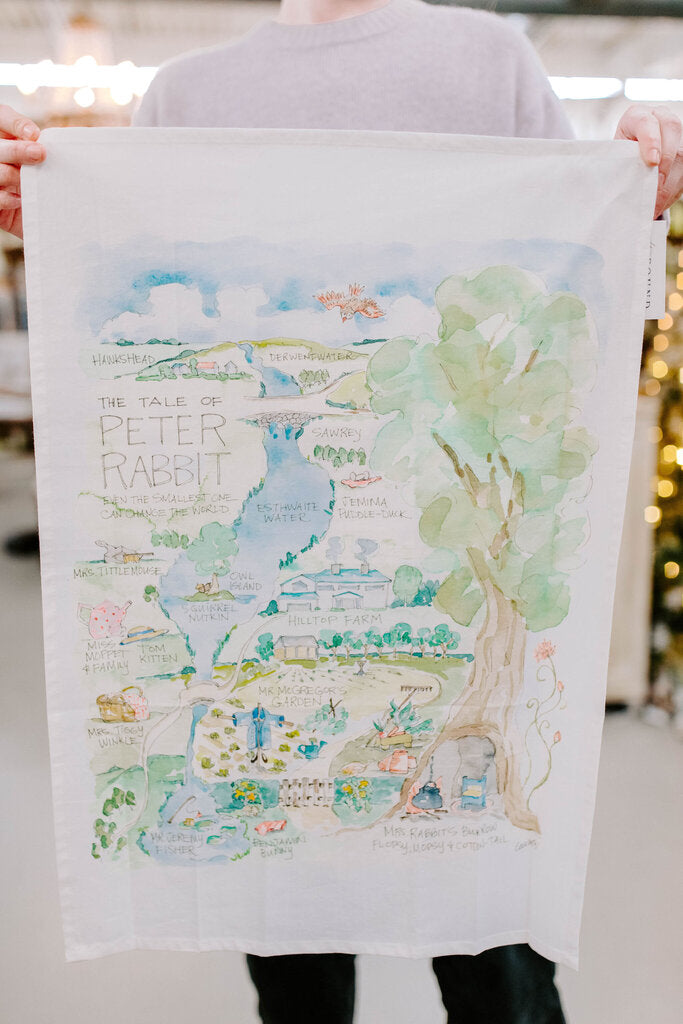 HAWKSHEAD
DERWENTWATER
THE TALE OF
PETER
RABBIT
EVEN THE SMALLEST ONE
CAN CHANGE THE WORLD.
SAWREY
JEMIMA
PUDDLE-DUCK
ESTHWAITE
WATER
MRS. TITTLEMOUSE
OWL
ISLAND
SQUIRREL
NUTKIN
HILLTOP FARM
MISS
MOPPET
& FAMILY
TOM
KITTEN
MR. McGREGOR'S
GARDEN
MRS. TIGGY
WINKLE
MR JEREMY
FISHER
BENJAMIN
BUNNY
MRS. RABBIT'S BURROW
FLOPSY, MOPSY & COTTON-TAIL